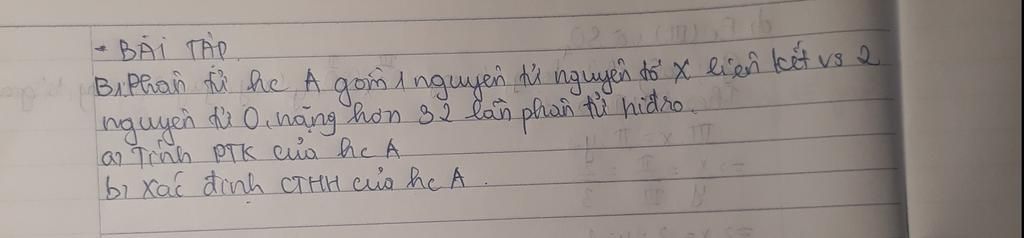 - BÀI TẬP
B1, Phân tử hc A gồm 1 nguyên tử nguyên tố X liên kết vs 2
nguyên tử O, nặng hơn 32 lần phân tử hiđro.
a, Tính PTK của hc A
b, Xác định CTHH của hc A.